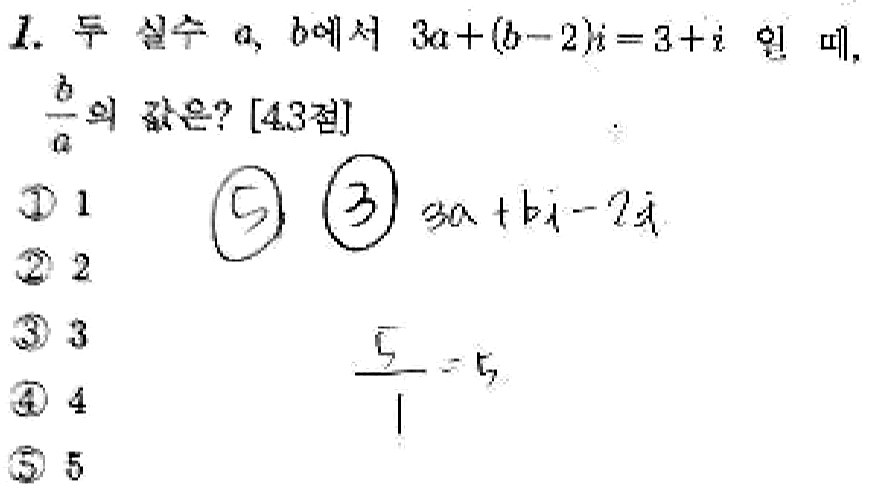 1. 두 실수 a, b에서 3a+(b-2)i=3+i 일 때,
b/a의 값은? [4.3점]
① 1
⑤ ③ 3a+bi-2i
② 2
③ 3
5/1=5
④ 4
⑤ 5